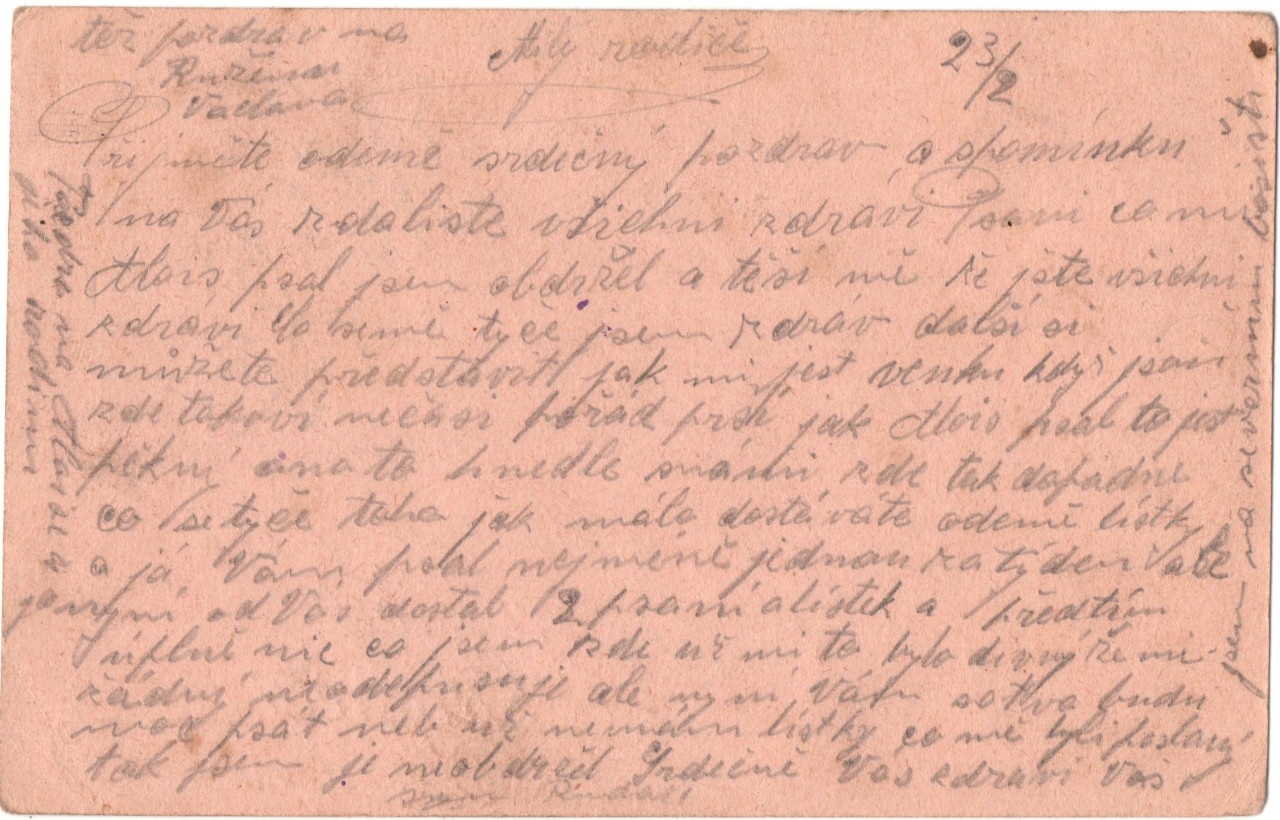 též pozdrav na
Ruženu
Václava
Milý rodiče
23/2
Přijměte odemě srdečný pozdrav a spomínku
na Vás zdaliste všichni zdrávi Psaní co mi
Alois psal jsem obdržel a těší mě že jste všichni
zdrávi Co semě tyče jsem zdráv další si
můžete představit jak mi jest venku když jsou
zde takoví nečasi pořád prší jak Alois psal to jest
pěkný ona to hnedle snámi zde tak dopadne
co se tyče toho jak málo dostáváte odemě lístky
já Vám psal nejméně jednou za týden ale
nyní od Vás dostal 2 psaní a lístek a předtím
úplně nic co jsem zde už mi to bylo divný že mi
žádný neodepisuje ale nyní Vám sotva budu
moc psát neb už nemám lístky co mě byli poslaný
tak jsem je neobdržel Srdečně Vás zdraví Váš
syn
Pozdra na Aloise a
jeho rodinu
jsem na severním bojišti